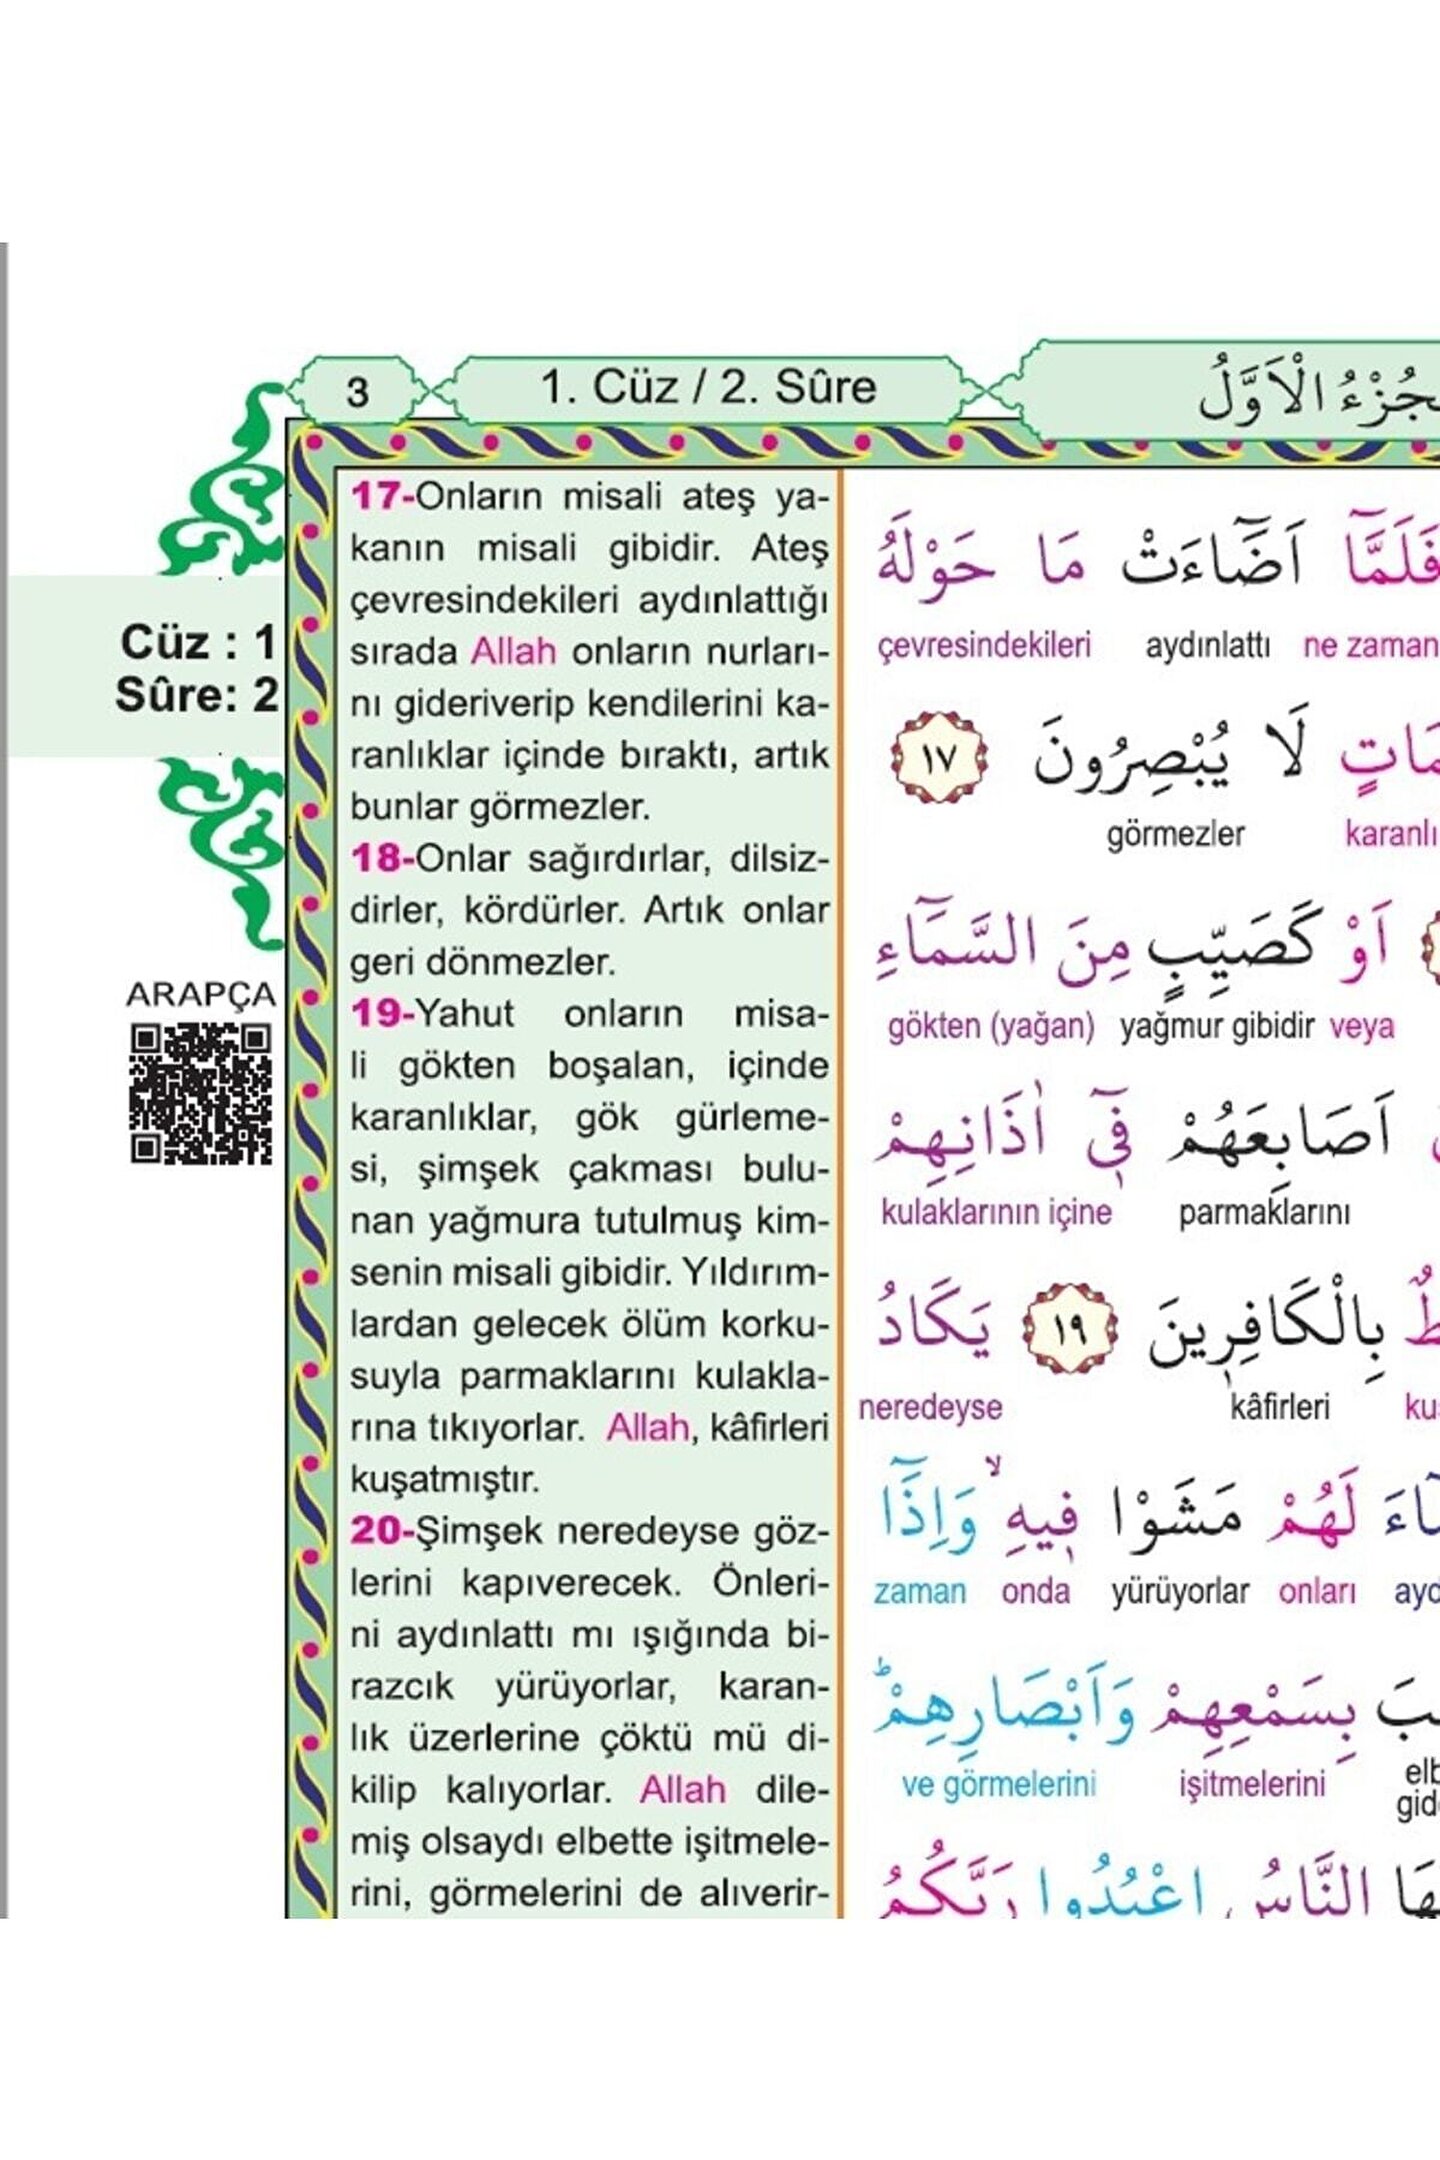 3
1. Cüz / 2. Sûre
الْاَوَّلُ
Cüz : 1
Sûre: 2
ARAPÇA
17-Onların misali ateş ya-
kanın misali gibidir. Ateş
çevresindekileri aydınlattığı
sırada Allah onların nurları-
nı gideriverip kendilerini ka-
ranlıklar içinde bıraktı, artık
bunlar görmezler.
18-Onlar sağırdırlar, dilsiz-
dirler, kördürler. Artık onlar
geri dönmezler.
19-Yahut onların misa-
li gökten boşalan, içinde
karanlıklar, gök gürleme-
si, şimşek çakması bulu-
nan yağmura tutulmuş kim-
senin misali gibidir. Yıldırım-
lardan gelecek ölüm korku-
suyla parmaklarını kulakla-
rına tıkıyorlar. Allah, kâfirleri
kuşatmıştır.
20-Şimşek neredeyse göz-
lerini kapıverecek. Önleri-
ni aydınlattı mı ışığında bi-
razcık yürüyorlar, karan-
lık üzerlerine çöktü mü di-
kilip kalıyorlar. Allah dile-
miş olsaydı elbette işitmele-
rini, görmelerini de alıverir-
فَلَمَّٓا اَضَٓاءَتْ مَا حَوْلَهُ
çevresindekileri aydınlattı ne zaman
لَا يُبْصِرُونَ ١٧
görmezler
اَوْ كَصَيِّبٍ مِنَ السَّمَٓاءِ
gökten (yağan) yağmur gibidir veya
اَصَابِعَهُمْ فٖٓي اٰذَانِهِمْ
kulaklarının içine parmaklarını
بِالْكَافِرٖينَ ١٩ يَكَادُ
neredeyse kâfirleri
لَهُمْ مَشَوْا فٖيهِۙ وَاِذَٓا
zaman onda yürüyorlar onları
بِسَمْعِهِمْ وَاَبْصَارِهِمْؕ
ve görmelerini işitmelerini
النَّاسُ اعْبُدُوا رَبَّكُمُ